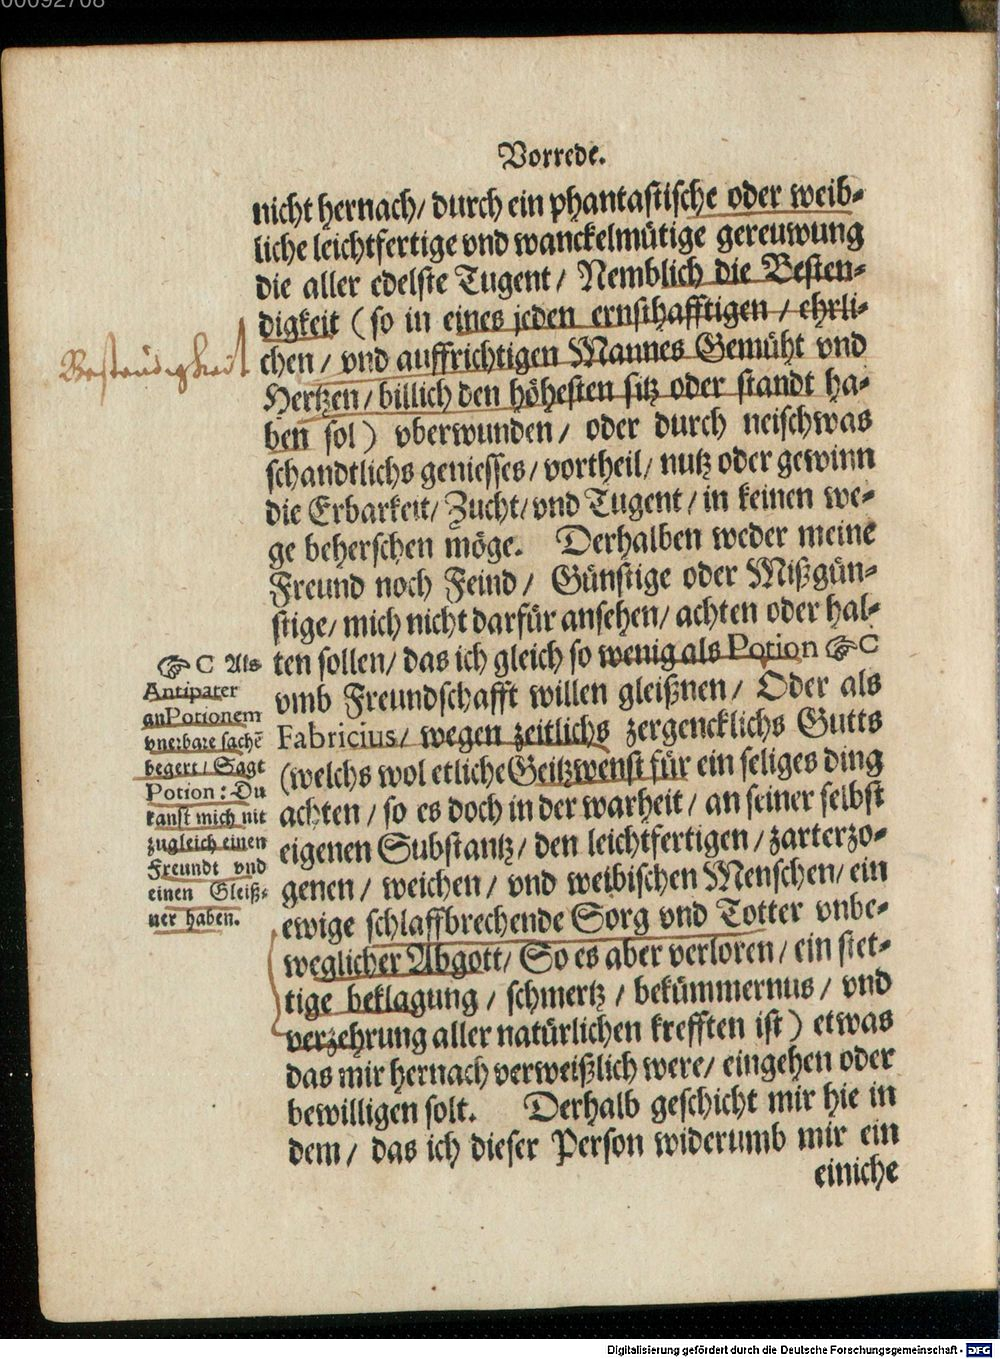 00092708
Vorrede.
nicht hernach / durch ein phantastische oder weib⸗
liche leichtfertige vnd wanckelmütige gereuwung
die aller edelste Tugent / Nemblich die Besten⸗
digkeit (so in eines jeden ernsthafftigen / ehrli⸗
chen / vnd auffrichtigen Mannes Gemüht vnd
Hertzen / billich den höhesten sitz oder standt ha⸗
ben sol) vberwunden / oder durch neischwas
schandtlichs geniesses / vortheil / nutz oder gewinn
die Erbarkeit / Zucht / vnd Tugent / in keinen we⸗
ge beherschen möge. Derhalben weder meine
Freund noch Feind / Günstige oder Mißgün⸗
stige / mich nicht darfür ansehen / achten oder hal⸗
ten sollen / das ich gleich so wenig als Potion ☞ C
vmb Freundschafft willen gleißnen / Oder als
Fabricius / wegen zeitlichs zergencklichs Gutts
(welchs wol etliche Geitzwenst für ein seliges ding
achten / so es doch in der warheit / an seiner selbst
eigenen Substantz / den leichtfertigen / zarterzo⸗
genen / weichen / vnd weibischen Menschen / ein
ewige schlaffbrechende Sorg vnd Totter vnbe⸗
weglicher Abgott / So es aber verloren / ein stet⸗
tige beklagung / schmertz / bekümmernus / vnd
verzehrung aller natürlichen krefften ist) etwas
das mir hernach verweißlich were / eingehen oder
bewilligen solt. Derhalb geschicht mir hie in
dem / das ich dieser Person widerumb mir ein
einiche
Bestendigkeit
☞ C Als
Antipater
an Potionem
vnerbare sachē
begert / Sagt
Potion: Du
kanst mich nit
zugleich einen
Freundt vnd
einen Gleiß⸗
ner haben.
Digitalisierung gefördert durch die Deutsche Forschungsgemeinschaft - DFG